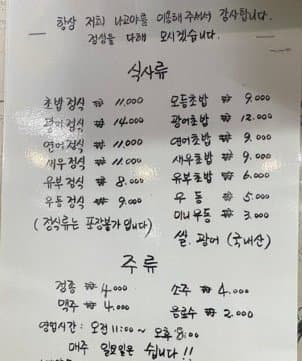 항상 저희 나고야를 이용해 주셔서 감사합니다.
정성을 다해 모시겠습니다.
식사류
초밥 정식 ₩ 11.000
광어 정식 ₩ 14.000
연어 정식 ₩ 11.000
새우 정식 ₩ 11.000
유부 정식 ₩ 8.000
우동 정식 ₩ 9.000
(정식류는 포장불가 입니다)
모듬초밥 ₩ 9.000
광어초밥 ₩ 12.000
연어초밥 ₩ 9.000
새우초밥 ₩ 9.000
유부초밥 ₩ 6.000
우동 ₩ 5.000
미니우동 ₩ 3.000
쌀. 광어 (국내산)
주류
청종 ₩ 4.000
맥주 ₩ 4.000
소주 ₩ 4.000
음료수 ₩ 2.000
영업시간 : 오전 11:00 ~ 오후 8:00
매주 일요일은 쉽니다!!